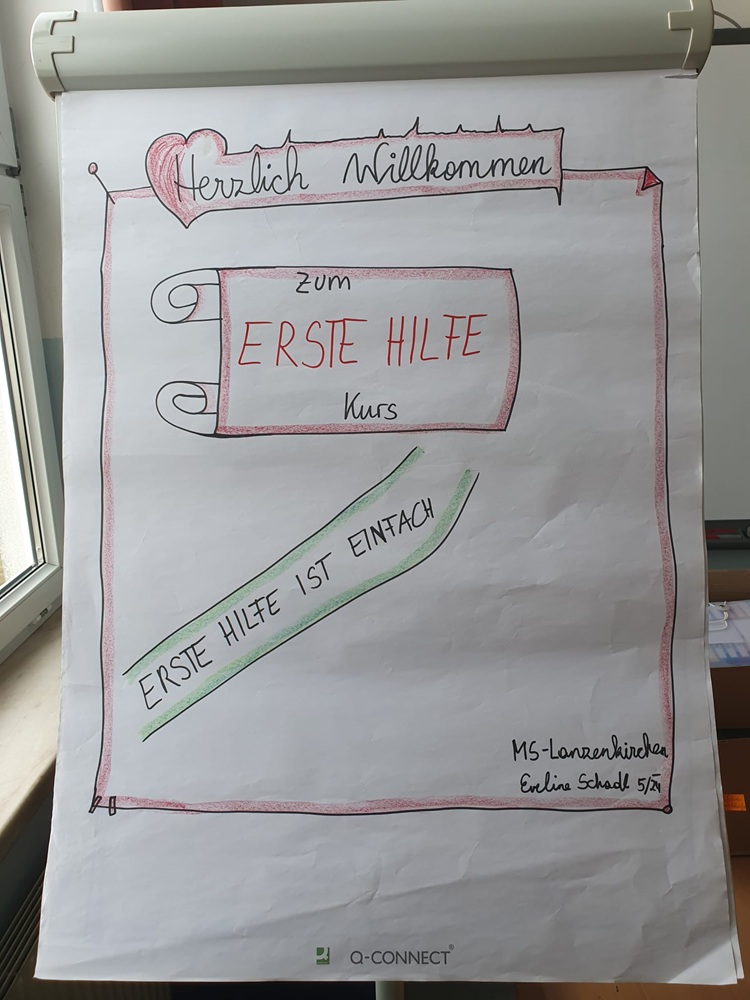 Herzlich Willkommen
zum
ERSTE HILFE
Kurs
ERSTE HILFE IST EINFACH
MS-Lanzenkirchen
Eveline Schadl 5/24
Q-CONNECT®